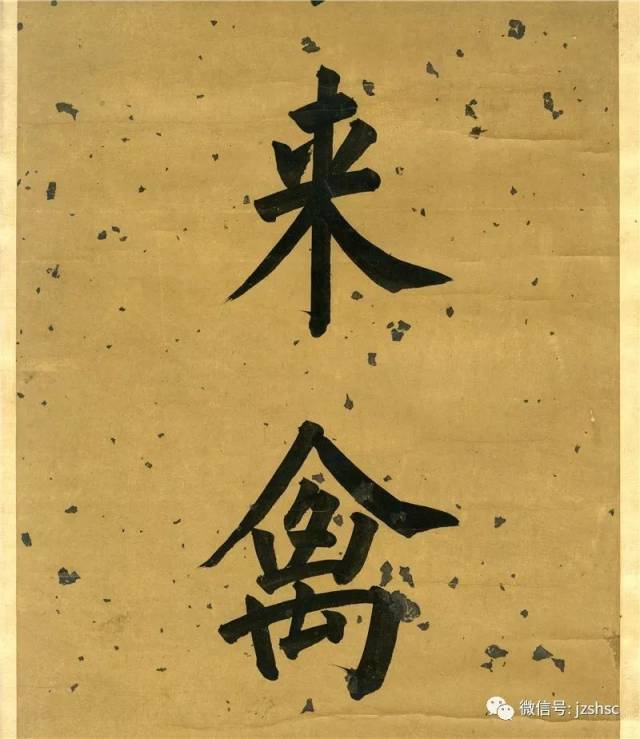 来
禽
微信号: jzshsc